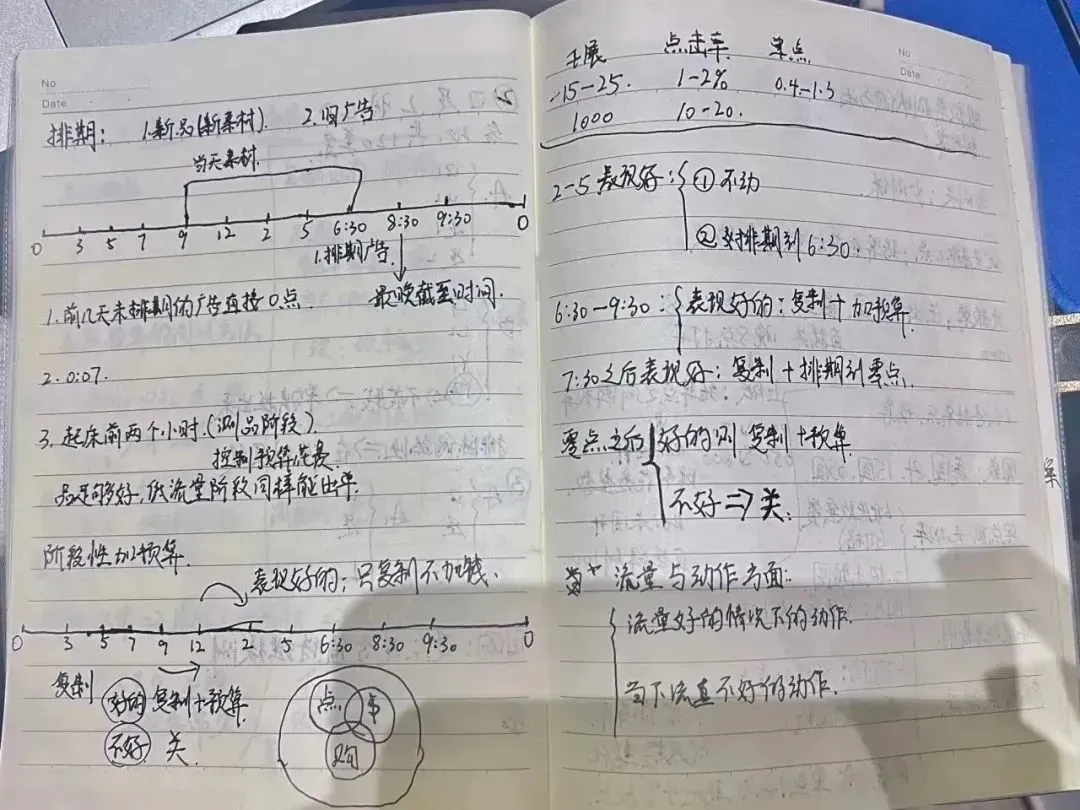 No
Date
排期: 1.新品(新素材). 2.旧广告
当天素材.
0 3 5 7 9 12 2 5 6:30 8:30 9:30 0
1.排期广告.
最晚截至时间.
1.前几天未排期的广告直接0点
2. 0:07.
3. 起床前两个小时.(测品阶段)
控制预算花费
品足够好,低流量阶段同样能出单.
阶段性加预算.
表现好的:只复制不加钱.
0 3 5 7 9 12 2 5 6:30 8:30 9:30 0
复制
好的 复制+预算
不好 关.
点
购
No
Date
千展 点击率 单点
15-25. 1-2% 0.4-1.3
1000 10-20.
2-5表现好: ① 不动
② 排期到6:30.
6:30-9:30: 表现好的:复制+加预算.
7:30之后表现好:复制+排期到零点.
零点之后 好的则 复制+预算.
不好⇒关.
流量与动作方面:
流量好的情况下的动作.
当下流量不好的动作.